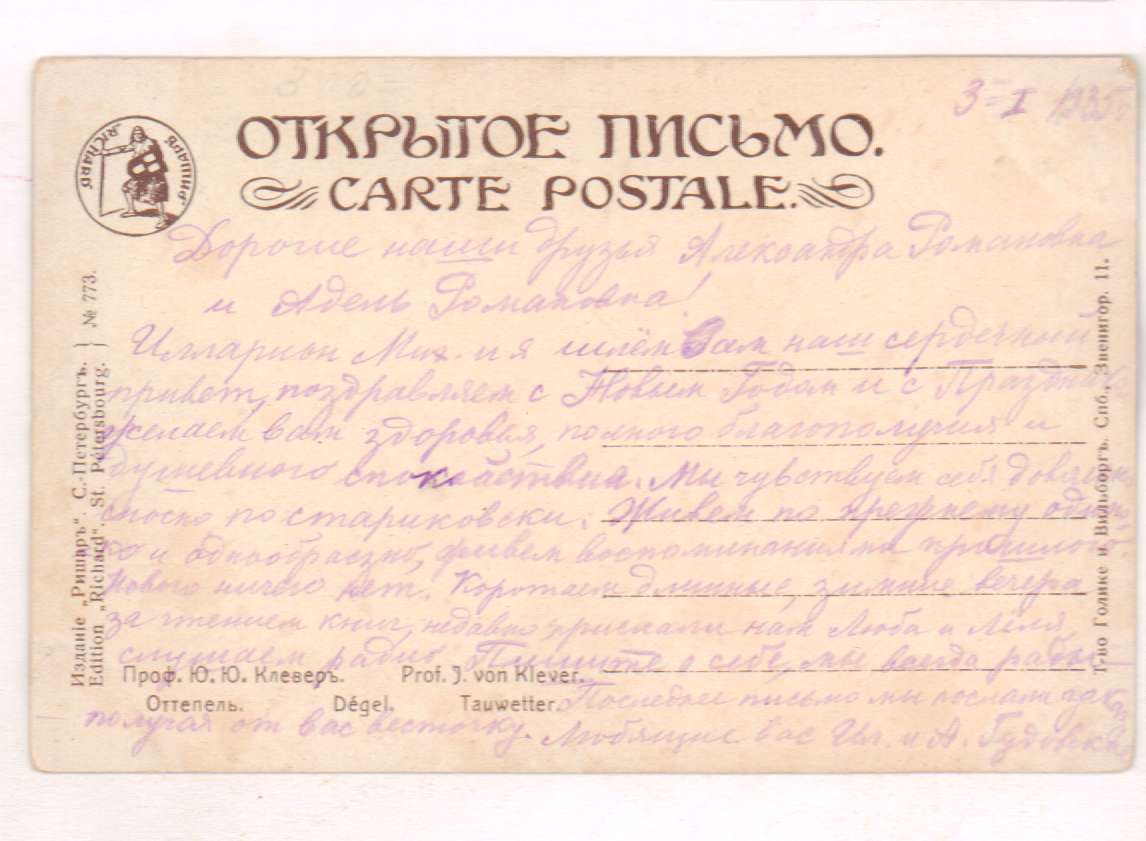 3 = I 1935
"RICHARD" "РИШАРЪ"
ОТКРЫТОЕ ПИСЬМО.
CARTE POSTALE.
Дорогие наши друзья Александра Романовна
и Адель Романовна!
Илларион Мих. и я шлём Вам наш сердечный
привет, поздравляем с Новым Годом и с Праздник
желаем вам здоровья, полного благополучия и
душевного спокойствия. Мы чувствуем себя
сносно по стариковски. Живем по прежнему
и однообразно, живем воспоминаниями
Нового ничего нет. Коротаем длинные, зимние вечера
за чтением книг, недавно прислали нам Люба и Леля
слушаем радио. Пишите о себе, мы всегда рады
Последнее письмо мы послали
получая от вас весточку. Любящие вас Ил. и А.
Изданіе „Ришаръ". С.-Петербургъ.
Edition „Richard". St. Pétersbourg.
№ 773.
Т-во Голике и Вильборгъ. Спб. Звенигор. 11.
Проф. Ю. Ю. Клеверъ. Prof. J. von Klever.
Оттепель. Dégel. Tauwetter.